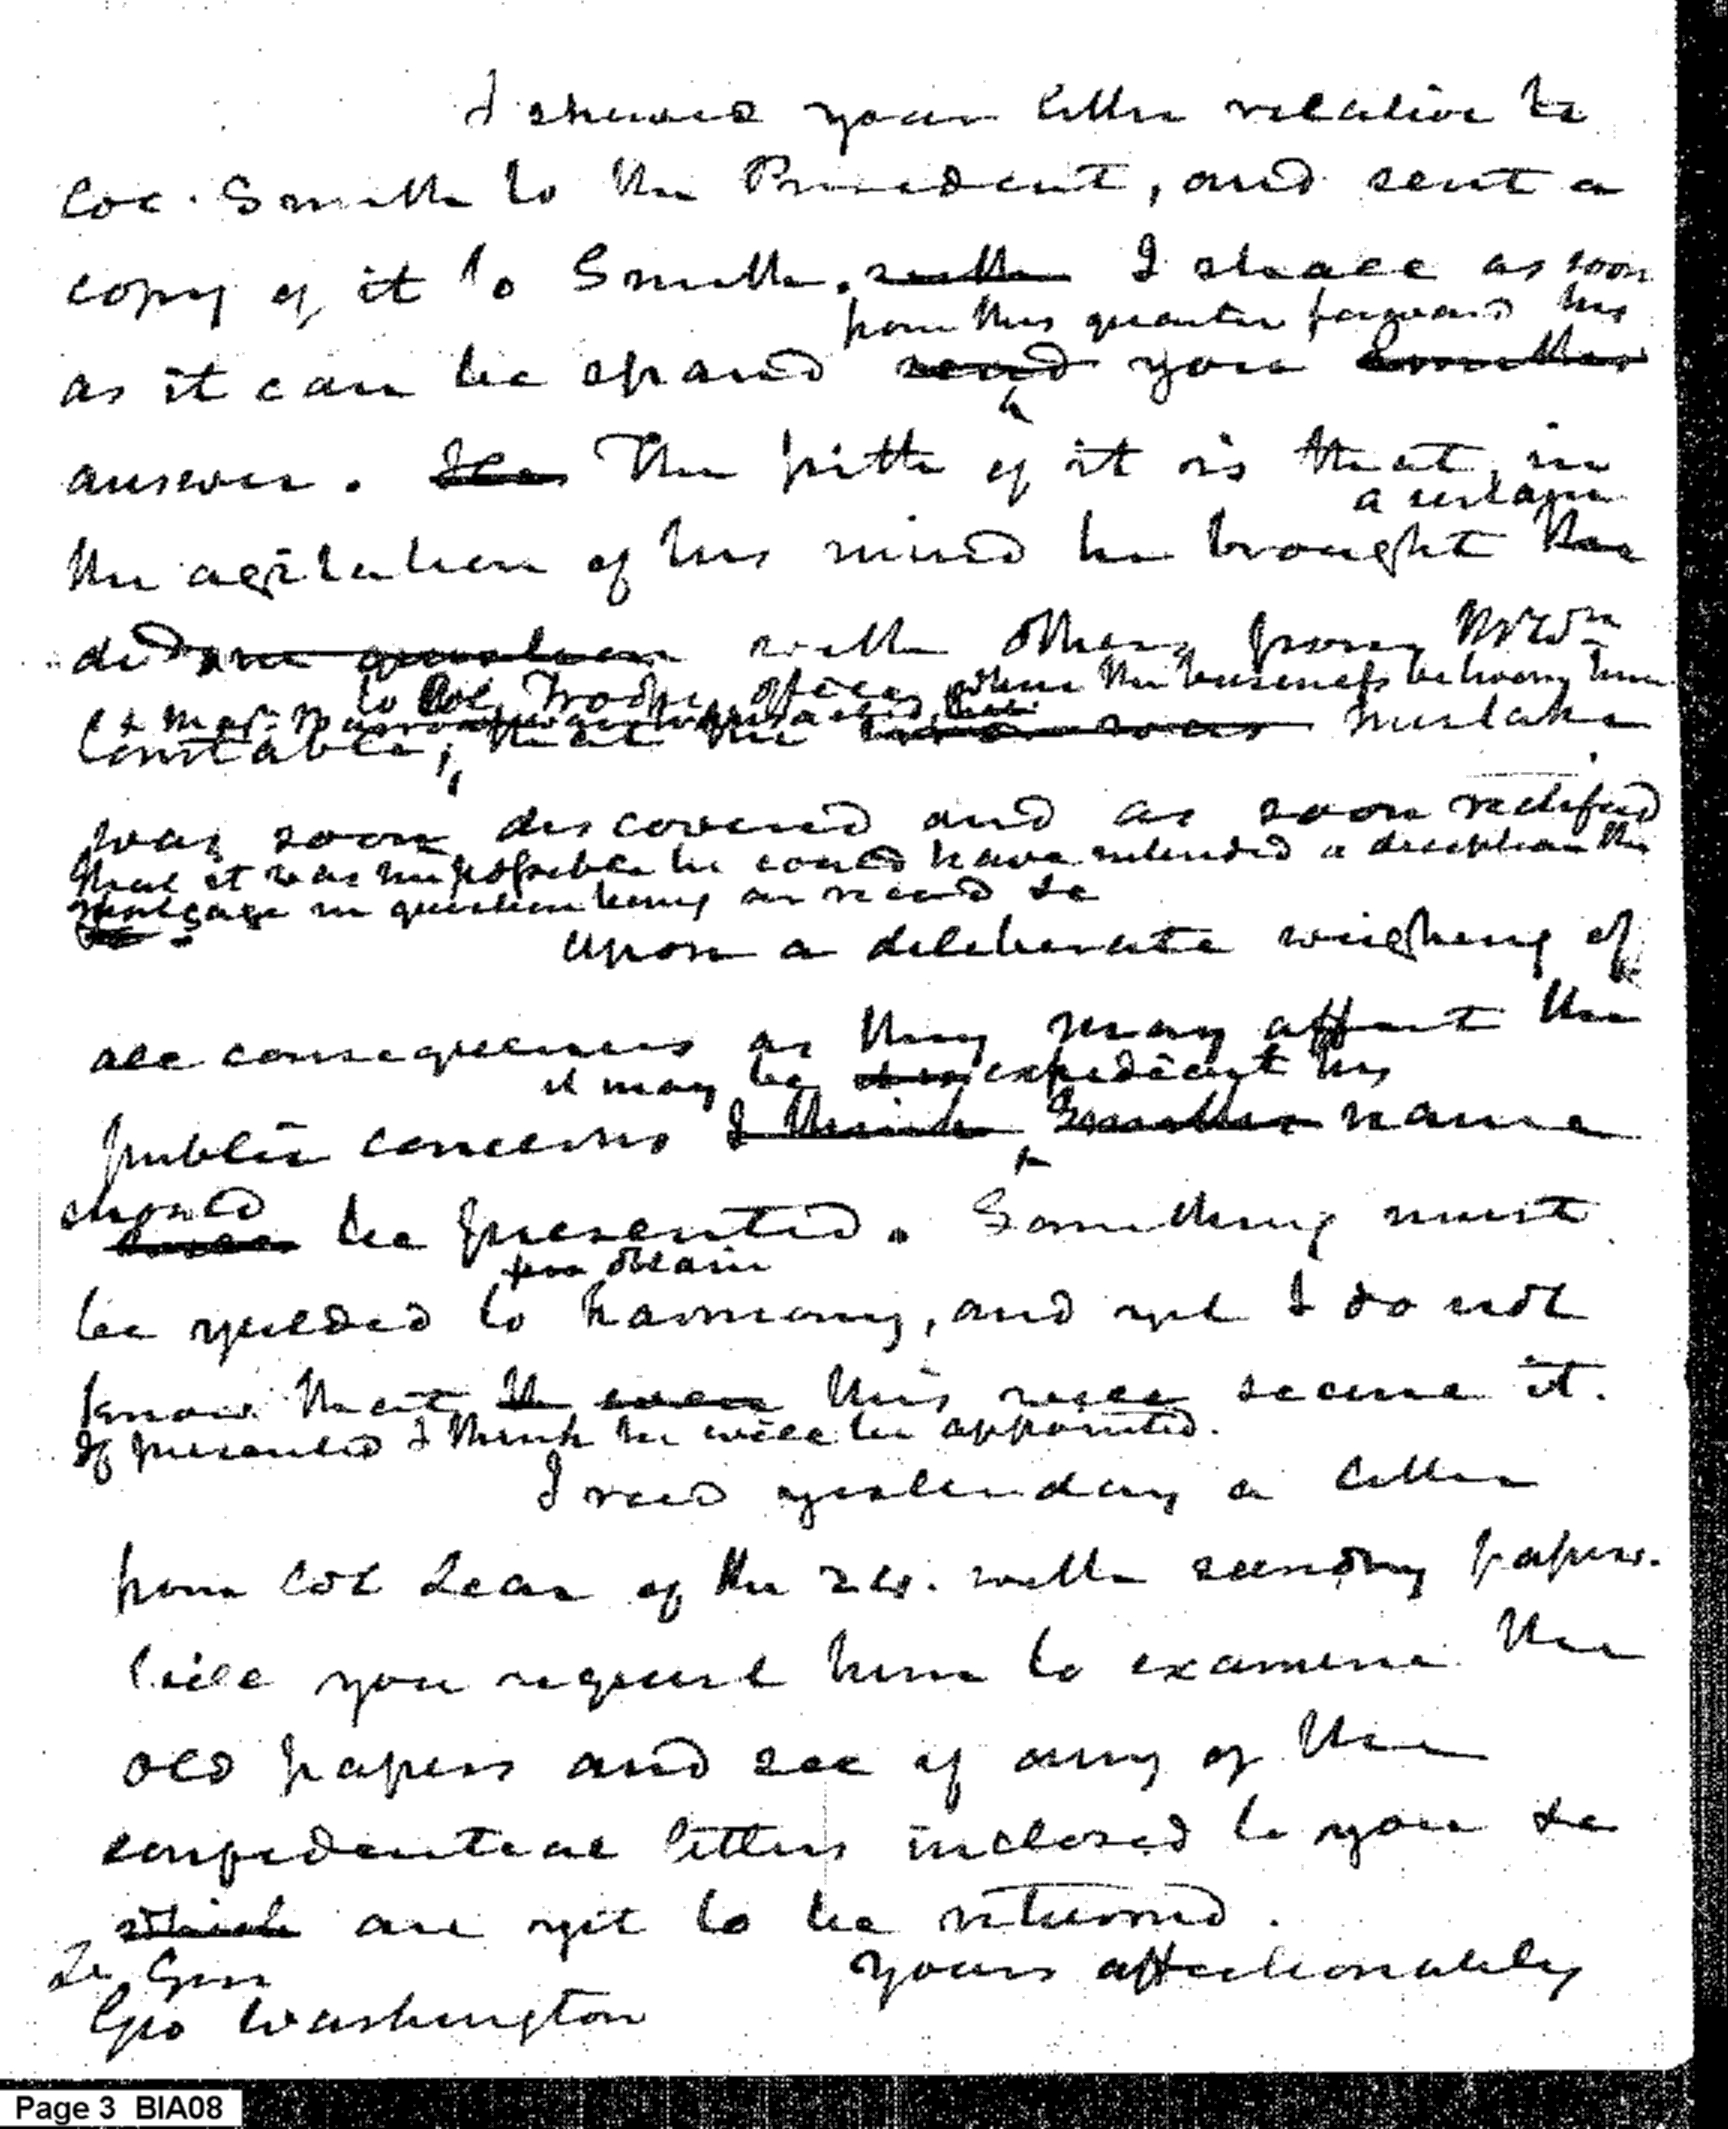 I shewed your letter relative to
Col. Smith to the President, and sent a
copy of it to Smith. I shall as soon
from this quarter forward his
as it can be spared send you Smiths
answer. The pith of it is that in
a certain
the agitation of his mind he brought the
deed in question with others from Mr Wm
to Col. Troops office, where the business between him
& Majr.
Constable, that the error was mistake
was soon discovered and as soon rectified
that it was impossible he could have intended a deception the
mortgage in question being on record &c
Upon a deliberate weighing of
all consequences as they may affect the
it may be expedient his
public concerns I think Smiths name
should
be presented. Something must
obtain
be yielded to harmony, and yet I do not
know that even this will secure it.
If presented I think he will be appointed.
I recd yesterday a letter
from Col Lear of the 24. with sundry papers.
Will you request him to examine the
old papers and see if any of the
confidential letters inclosed to you &c
which are yet to be returned.
Yours affectionately
Lt. Gen
Geo Washington
Page 3 BIA08